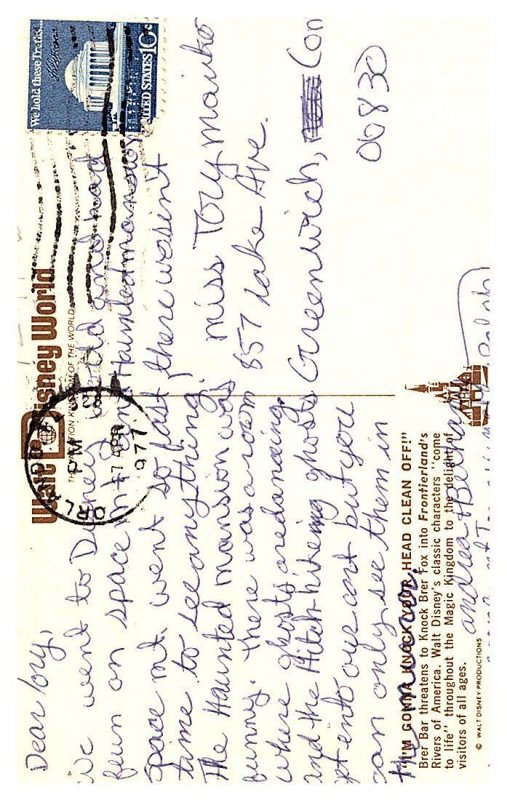 Dear Tory,
We went to Disney World and had
feun on space mt. and Haunted mansion
Space mt. went so fast there wasent
time to see anything.
The Haunted mansion was
funny. There was a room
where ghosts are dancing
and the Hitch-hikeing ghosts
get into your cart but you
can only see them in
the mirror.
Walt Disney World
THE VACATION KINGDOM OF THE WORLD
ORL
PM
7 APR
1977
We hold these Truths...
UNITED STATES 10c
miss Tory
857 Lake Ave.
Greenwich, Con
00830
"I'M GONNA KNOCK YOUR HEAD CLEAN OFF!"
Brer Bar threatens to Knock Brer Fox into Frontierland's
Rivers of America. Walt Disney's classic characters "come
to life" throughout the Magic Kingdom to the delight of
visitors of all ages.
© WALT DISNEY PRODUCTIONS